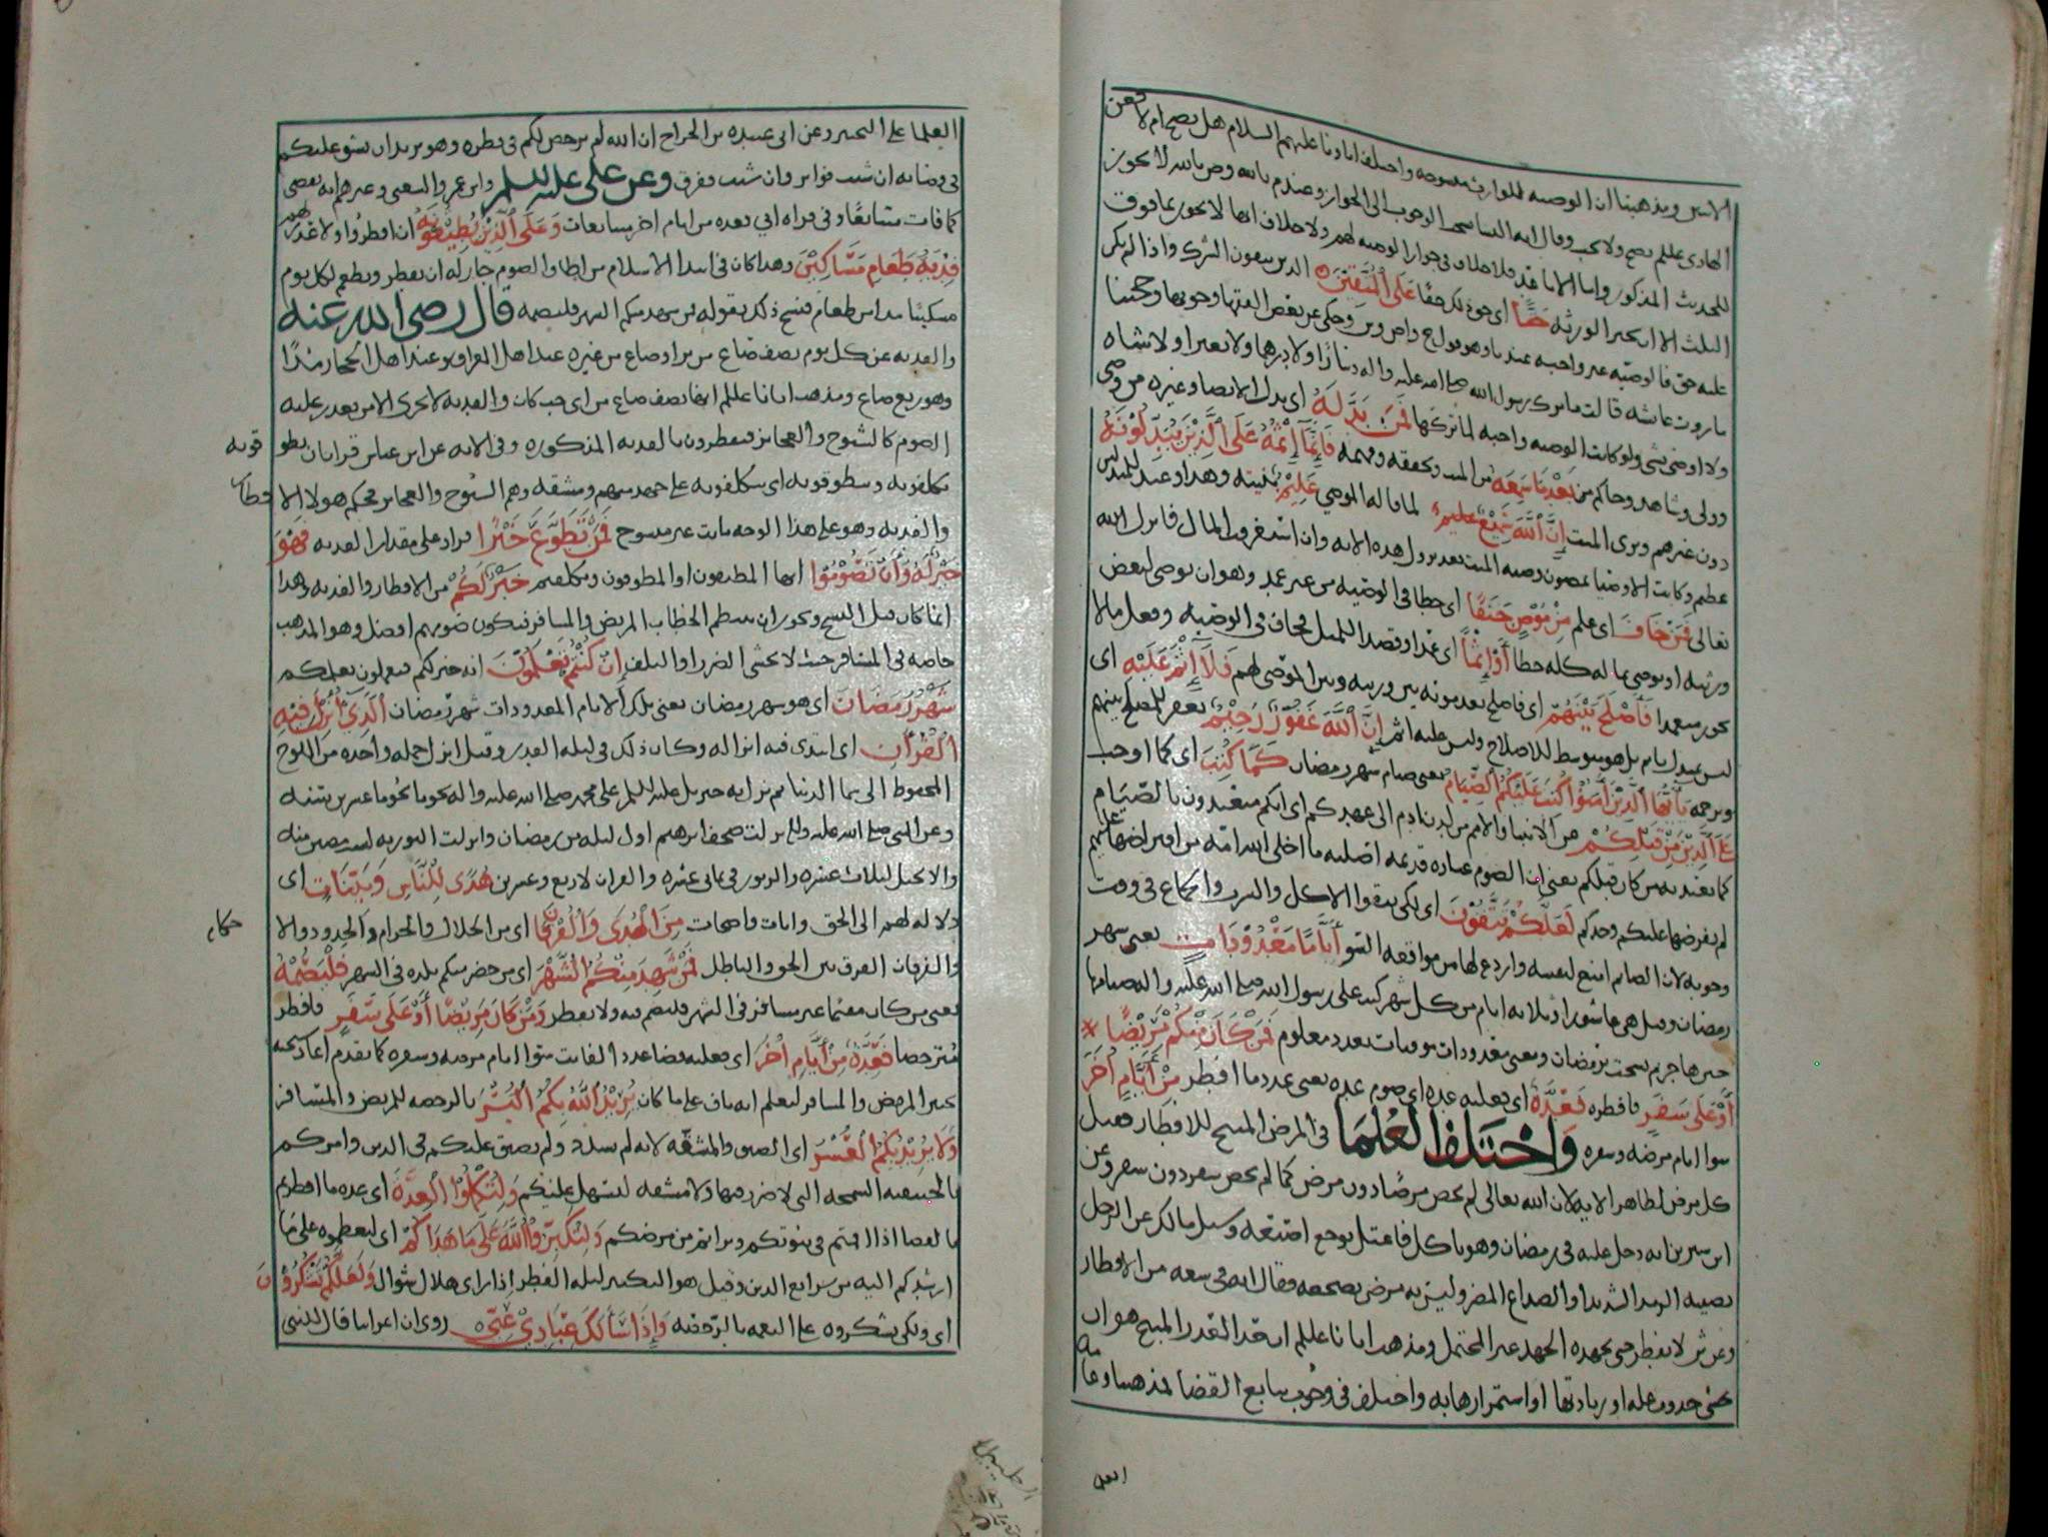 الاثنين ومذهبنا ان الوصيه للوارث منسوخه واختلف اباونا عليهم السلام هل يصح ام لا فعن
الهادى عللم تصح ولا تجب وقال الى الجواز وعندم بالله وص بالله لا يجوز
للحديث المذكور واما الاباقد فلا خلاف فى جواز الوصيه لهم ولا خلاف انها لا يجوز بما فوق
الثلث الا ان يجيز الورثه حَقًّا اى حق ذلك حقا عَلَى الْمُتَّقِيْنَ الذين يتقون الشرك واذا لم يكن
عليه حق فالوصيه غير واجبه عندنا وهو قول ح واص وش وحكى عن بعض الفقها وجوبها وحجتنا
ما روت عائشه قالت ما ترك رسول الله صلى الله عليه واله دينارًا ولا درهما ولا بعيرا ولا شاه
ولا اوصى بشى ولو كانت الوصيه واجبه لما تركها فَمَن بَدَّلَهُ اى بدل الايصا وغيره من وصى
وولى وشاهد وحاكم من بَعْدِ مَا سَمِعَهُ من الميت وتحققه وفهمه فَإِنَّمَا إِثْمُهُ عَلَى الَّذِيْنَ يُبَدِّلُوْنَهُ
دون غيرهم وبرى الميت إِنَّ اللَّهَ سَمِيْعٌ عَلِيمٌ لما قاله الموصى عَلِيْمٌ بنيته وهذا وعيد للمبدلين
عظيم وكانت الاوصيا يمضون وصيه الميت بعد نزول هذه الايه وان استغرقت المال فانزل الله
تعالى فَمَنْ خَافَ اى علم مِنْ مُوْصٍ جَنَفًا اى خطا فى الوصيه من غير عمد وهو ان يوصى لبعض
ورثته او يوصى بماله كله خطا أَوْ إِثْمًا اى عمدا وقصد الميل فحاف فى الوصيه وفعل مالا
يجوز متعمدا فَأَصْلَحَ بَيْنَهُمْ اى فاصلح بعد موته بين ورثته وبين الموصى لهم فَلَا إِثْمَ عَلَيْهِ اى
ليس بمبدل ياثم بل هو متوسط للاصلاح وليس عليه اثم إِنَّ اللَّهَ غَفُوْرٌ رَحِيْمٌ يغفر للمصلح بينهم
ويرحمه يَاأَيُّهَا الَّذِيْنَ آمَنُوْا كُتِبَ عَلَيْكُمُ الصِّيَامُ يعنى صيام شهر رمضان كَمَا كُتِبَ اى كما اوجب
عَلَى الَّذِيْنَ مِنْ قَبْلِكُمْ من الانبيا والامم من لدن ادم الى عهدكم اى انكم متعبدون بالصيام
كما تعبد به من كان قبلكم يعنى ان الصوم عباده قديمه اصليه ما اخلى الله امه من افتراضها عليهم
لم يفرضها عليكم وحدكم لَعَلَّكُمْ تَتَّقُوْنَ اى لكى يتقوا الاكل والشرب والجماع فى وقت
وجوبه لان الصايم امنع لنفسه واردع لها من مواقعه السو أَيَّامًا مَعْدُوْدَاتٍ يعنى شهر
رمضان وقيل هى عاشورا وثلاثه ايام من كل شهر كتب على رسول الله صلى الله عليه واله صيامها
حين هاجر ثم نسخت برمضان ومعنى معدودات موقتات بعدد معلوم فَمَنْ كَانَ مِنْكُمْ مَرِيْضًا
أَوْ عَلَى سَفَرٍ فافطر فَعِدَّةٌ اى فعليه عده اى صوم عده يعنى عدد ما افطر مِنْ أَيَّامٍ أُخَرَ
سوا ايام مرضه وسفره وَاخْتَلَفَ الْعُلَمَا فى المرض المبيح للافطار فقيل
كل مرض لظاهر الايه لان الله تعالى لم يخص مرضًا دون مرض كما لم يخص سفر دون سفر وعن
ابن سيرين انه دخل عليه فى رمضان وهو ياكل فاعتل بوجع اصبعه وسيل مالك عن الرجل
يصيبه الرمد الشديد او الصداع المضر وليس به مرض يضجعه فقال انه فى سعه من الافطار
وعن ش لا يفطر حتى يجهده الجهد غير المحتمل ومذهب ابانا عللم ان قدر القدر المبيح هو ان
يخشى حدوث عله او زيادتها او استمرارها به واختلف فى وجوب تتابع القضا فمذهبنا وعامه
العلما
العلما على التخيير وعن ابى عبيده بن الجراح ان الله لم يرخص لكم فى فطره وهو يريد ان يشق عليكم
فى قضايه ان شيت فواتر وان شيت ففرق وعن على عليه السلم وابن عمر والشعبى وغيرهم انه يقضى
كما فات متتابعًا وفى قراه ابي فعده من ايام اخر متتابعات وَعَلَى الَّذِيْنَ يُطِيْقُوْنَهُ ان افطروا ولا عذر لهم
فِدْيَةُ طَعَامِ مَسَاكِيْنَ وهذا كان فى ابتدا الاسلام من اطاق الصوم جاز له ان يفطر ويطعم لكل يوم
مسكينًا مدا من طعام فنسخ ذلك بقوله فمن شهد منكم الشهر فليصمه قال رضى الله عنه
والفديه عن كل يوم نصف صاع من بر او صاع من غيره عند اهل العراق وعند اهل الحجاز مدًا
وهو ربع صاع ومذهب ابانا عللم انها نصف صاع من اى حب كان والفديه لا تجزى الا من يعذر عليه
الصوم كالشيوخ والعجايز فيفطرون بالفديه المذكوره وفى الايه عن ابن عباس قراتان يطو
قونه
تكلفونه ويتطوقونه اى يتكلفونه على جهد منهم ومشقه وهم الشيوخ والعجايز فحكم هولا الا
فطار
والفديه وهو على هذا الوجه ثابت غير منسوخ فَمَنْ تَطَوَّعَ خَيْرًا فزاد على مقدار الفديه فَهُوَ
خَيْرٌ لَهُ وَأَنْ تَصُوْمُوْا ايها المطيقون او المطوقون وتكلفتم خَيْرٌ لَكُمْ من الافطار والفديه وهذا
انما كان قبل النسخ ويجوز ان ينتظم الخطاب المريض والمسافر فيكون صومهم افضل وهو المذهب
خاصه فى المسافر حيث لا يخشى الضرر او التلف إِنْ كُنْتُمْ تَعْلَمُوْنَ انه خير لكم فتعملون بعلمكم
شَهْرُ رَمَضَانَ اى هو شهر رمضان يعنى تلك الايام المعدودات شهر رمضان الَّذِيْ أُنْزِلَ فِيْهِ
الْقُرْآنُ اى ابتدى فيه انزاله وكان ذلك فى ليله القدر وقيل انزل جمله واحده من اللوح
المحفوظ الى سما الدنيا ثم نزل به جبريل عليه السلم على محمد صلى الله عليه واله نجومًا نجومًا عشرين سنه
وعن النبى صلى الله عليه واله نزلت صحف ابرهيم اول ليله من رمضان وانزلت التوريه لست مضين منه
والانجيل لثلاث عشره والزبور فى ثمانى عشره والقران لاربع وعشرين هُدًى لِلنَّاسِ وَبَيِّنَاتٍ اى
دلاله لهم الى الحق وايات واضحات مِنَ الْهُدَى وَالْفُرْقَانِ اى من الحلال والحرام والحدود والا
حكام
والفرقان الفرق بين الحق والباطل فَمَنْ شَهِدَ مِنْكُمُ الشَّهْرَ اى من حضر منكم بلده فى الشهر فَلْيَصُمْهُ
يعنى من كان مقيما غير مسافر فى الشهر فليصم فيه ولا يفطر وَمَنْ كَانَ مَرِيْضًا أَوْ عَلَى سَفَرٍ فافطر
مترخصا فَعِدَّةٌ مِنْ أَيَّامٍ أُخَرَ اى فعليه قضا عدد الفايت سوا ايام مرضه وسفره كما تقدم اعاد
تخيير المريض والمسافر ليعلم انه باق على ما كان يُرِيْدُ اللَّهُ بِكُمُ الْيُسْرَ بالرخصه للمريض والمسافر
وَلَا يُرِيْدُ بِكُمُ الْعُسْرَ اى الضيق والمشقه لانه لم يشدد ولم يضيق عليكم فى الدين وامركم
بالحنيفيه السمحه التى لا ضرر فيها ولا مشقه ليسهل عليكم وَلِتُكْمِلُوْا الْعِدَّةَ اى عده ما افطرتم
بالقضا اذا اقمتم فى بيوتكم وبراتم من مرضكم وَلِتُكَبِّرُوْا اللَّهَ عَلَى مَا هَدَاكُمْ اى لتعظموه على ما
ارشدكم اليه من شرايع الدين وقيل هو التكبير ليله الفطر إذا راى هلال شوال وَلَعَلَّكُمْ تَشْكُرُوْنَ
اى ولكى تشكروه على النعمه بالرخصه وَإِذَا سَأَلَكَ عِبَادِيْ عَنِّي روى ان اعرابيا قال للنبى